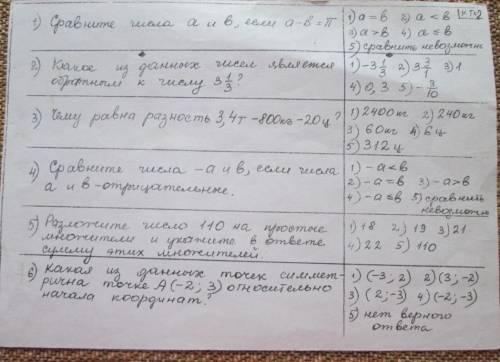 1) Сравните числа а и в, если а-в=π
1) а=в 2) а<в
3) а>в 4) а≤в
5) сравнить невозможно
2) Какое из данных чисел является
обратным к числу 3 1/3?
1) -3 1/3 2) 3 3/1 3) 1
4) 0,3 5) -3/10
3) Чему равна разность 3,4т -800кг -20ц?
1) 2400кг 2) 240кг
3) 60кг 4) 6ц
5) 312ц
4) Сравните числа -а и в, если числа
а и в - отрицательные.
1) -а<в
2) -а=в 3) -а>в
4) -а≤в 5) сравнить
невозможно
5) Разложите число 110 на простые
множители и укажите в ответе
сумму этих множителей.
1) 18 2) 19 3) 21
4) 22 5) 110
6) Какая из данных точек симмет-
рична точке А(-2; 3) относительно
начала координат?
1) (-3; 2) 2) (3; -2)
3) (2; -3) 4) (-2; -3)
5) нет верного
ответа